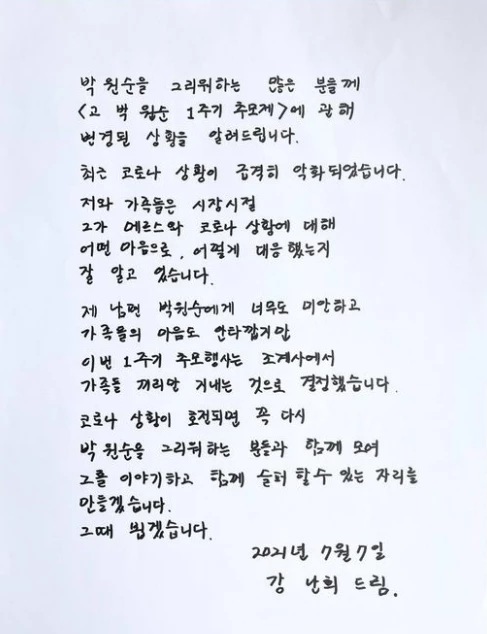 박원순을 그리워하는 많은 분들께
<고 박원순 1주기 추모제>에 관해
변경된 상황을 알려드립니다.
최근 코로나 상황이 급격히 악화되었습니다.
저와 가족들은 시장시절
그가 메르스와 코로나 상황에 대해
어떤 마음으로, 어떻게 대응했는지
잘 알고 있습니다.
제 남편 박원순에게 너무도 미안하고
가족들의 마음도 안타깝지만
이번 1주기 추모행사는 조계사에서
가족들 끼리만 거내는 것으로 결정했습니다.
코로나 상황이 호전되면 꼭 다시
박원순을 그리워하는 분들과 함께 모여
그를 이야기하고 함께 슬퍼 할 수 있는 자리를
만들겠습니다.
그때 뵙겠습니다.
2021년 7월 7일
강 난희 드림.